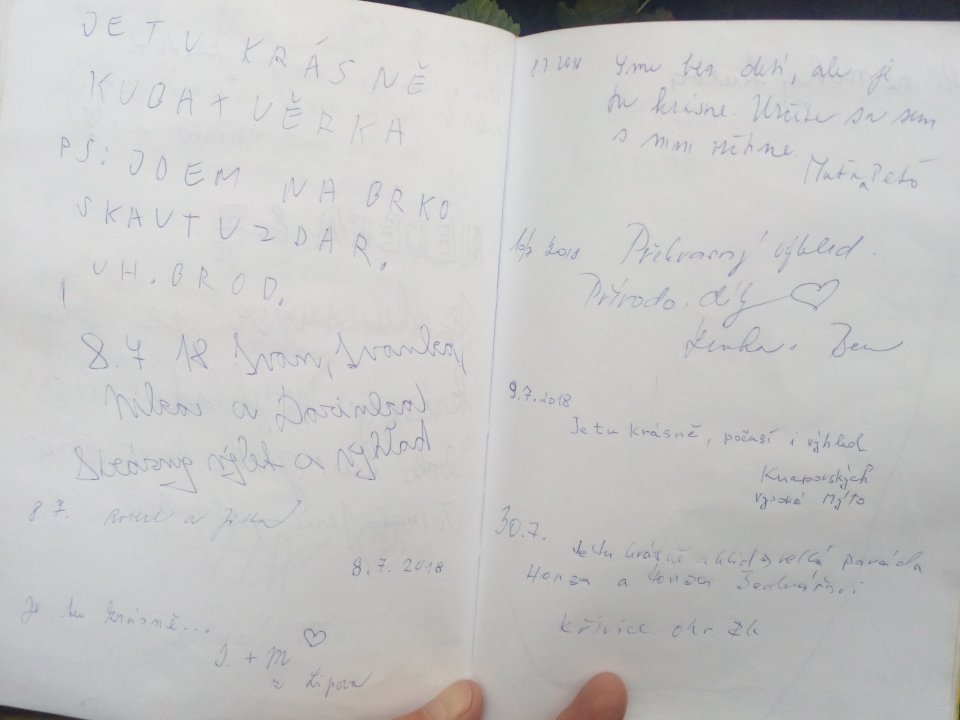 JE TU KRÁSNĚ
KUBA + VĚRKA
PS: JDEM NA BRKO
SKAUTU ZDAR.
UH. BROD.
8.7 18 Ivan, Ivanka,
Nika a Darinka
výlet a výhľad
8 7. a Jitka
8.7.2018
Je tu krásně...
J. + M ♡
z Lipova
2018 Sme bez detí, ale je
tu krásne. Určite sa sem
s nimi vrátime.
Maťa a Peťo
2018 Překrasný výhled.
Přírodo, díky ♡
Lenka + Ben
9.7.2018
Je tu krásně, počasí i výhled
Knapovských
Vysoké Mýto
30.7.
Je tu krásně a klid velká paráda
Honza a Honza Bednářovi
Křivice okr. RK